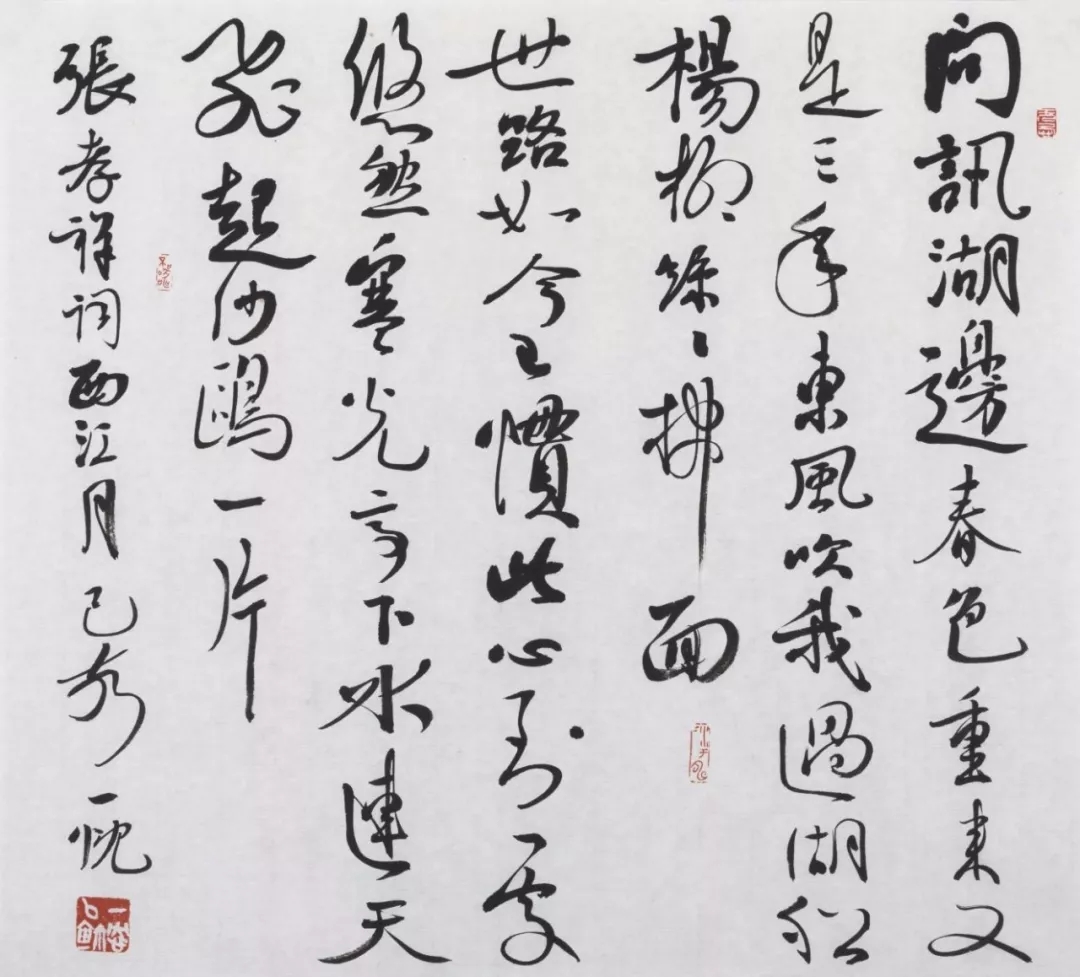 問訊湖邊春色重來又
是三年東風吹我過湖船
楊柳絲〻拂面
世路如今已慣此心到處
悠然寒光亭下水連天
飛起沙鷗一片
張孝祥詞西江月己亥一忱